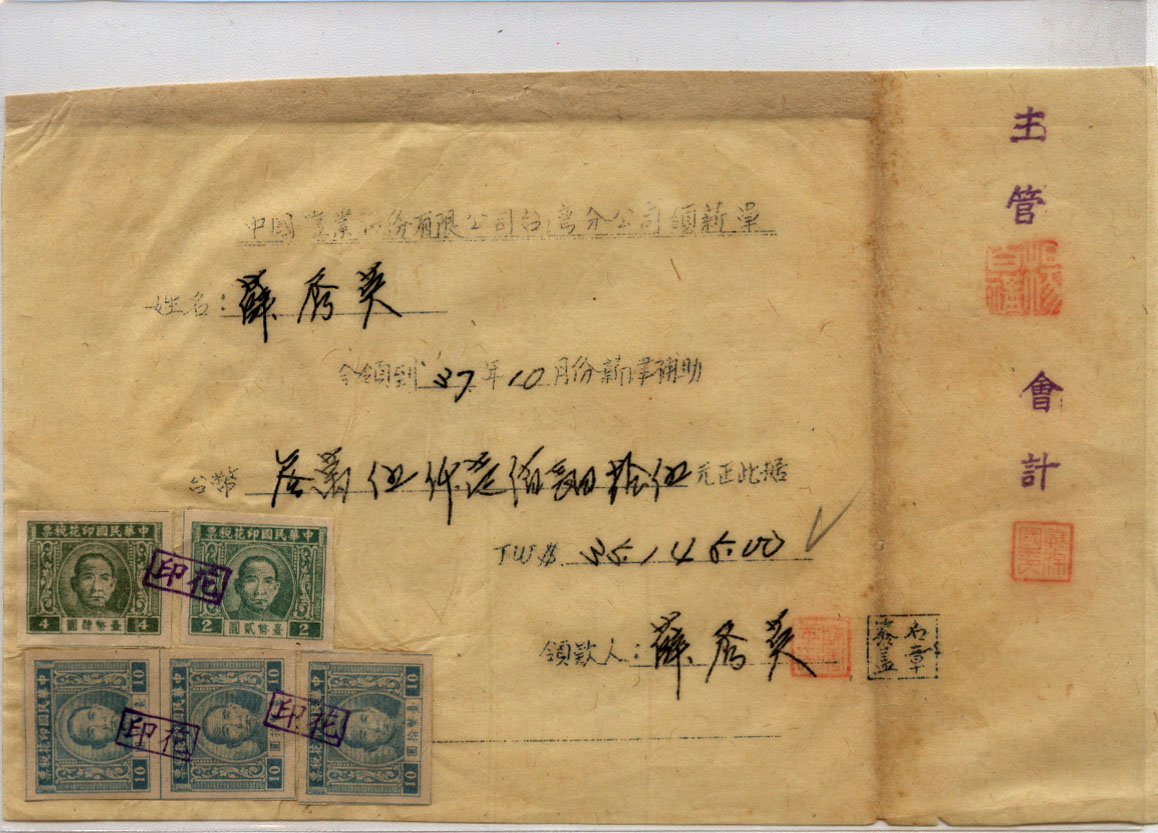 中國 業股份有限公司台灣分公司領薪單
姓名：薛秀英
今領到 37年10月份薪津補助
台幣 叁萬伍仟壹佰肆拾伍元正此據
TW$. 35.145.00
領款人：薛秀英
簽名
蓋章
主管
會計
中華民國印花稅票
4 臺幣肆圓 4
中華民國印花稅票
2 臺幣貳圓 2
印花
中華民國印花稅票
10 10
中華民國印花稅票
10 臺幣拾圓 10
中華民國印花稅票
10 臺幣拾圓 10
印花
印花